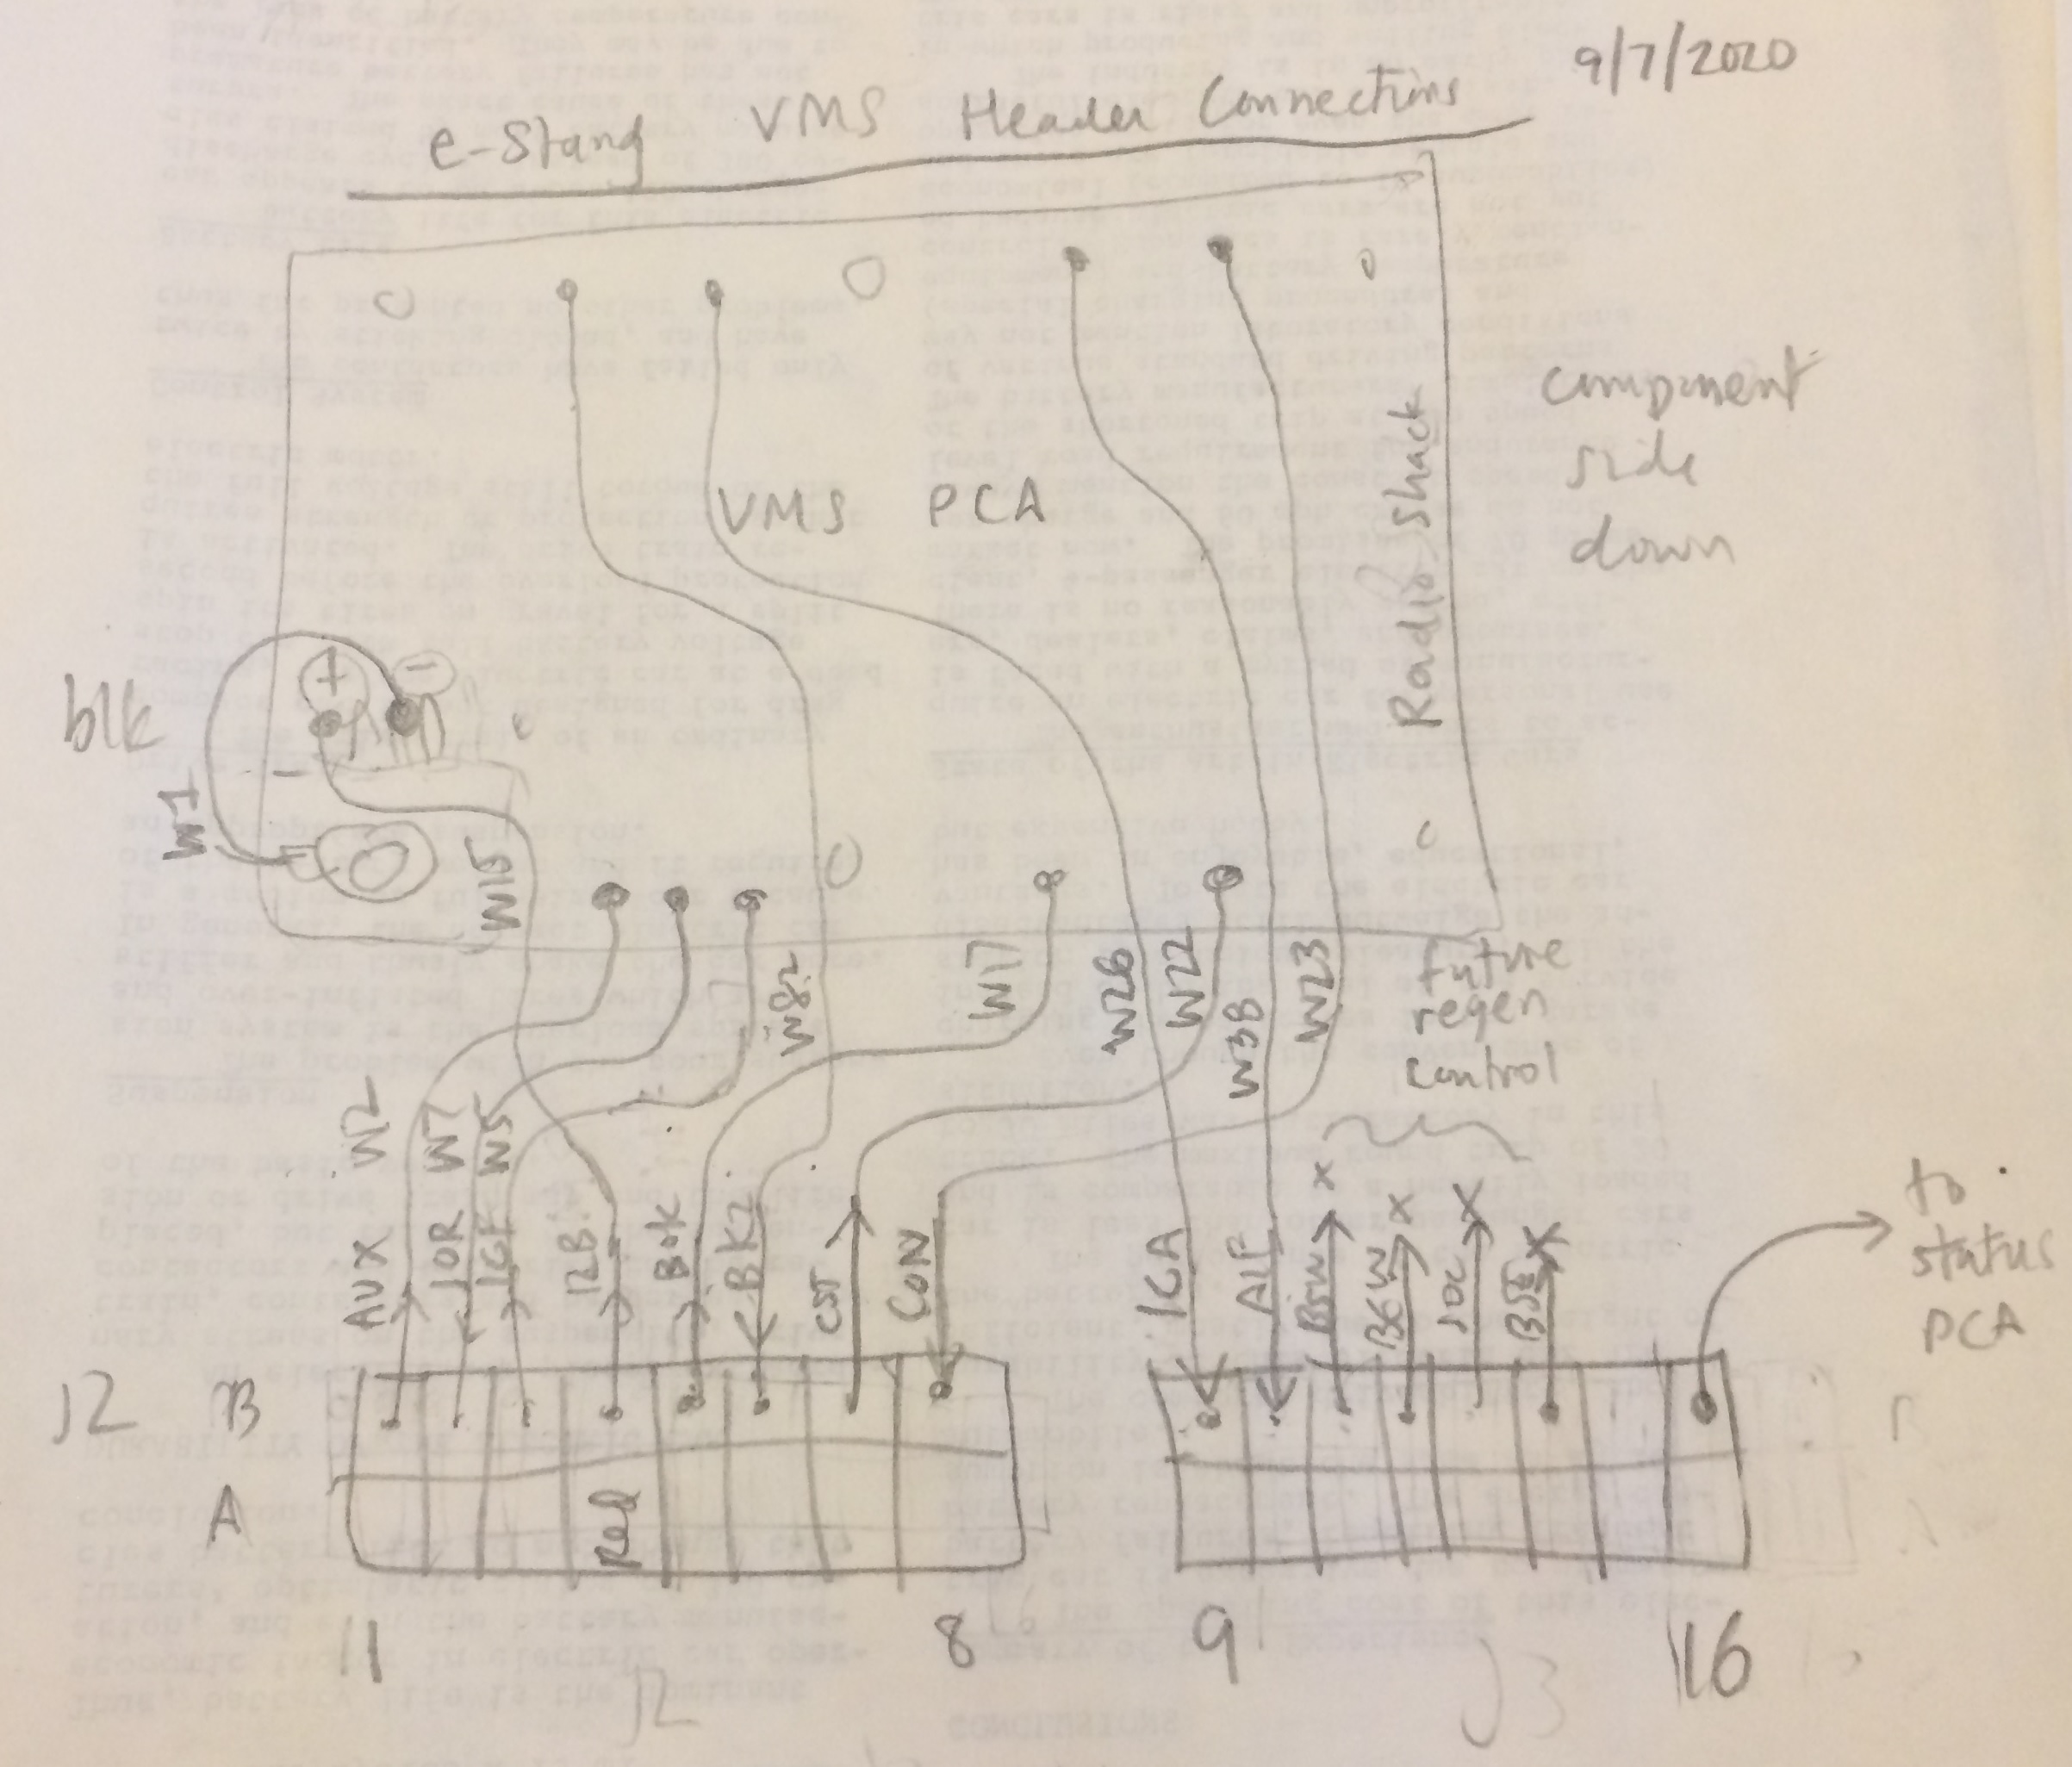 9/7/2020
e-Stang VMS Header Connections
component
side
down
VMS PCA
Radio Shack
blk
+ -
W1
W15
W82
W17
W26
W22
W3B
W23
future
regen
control
W2
W7
W5
AUX
JOR
12B
BOK
BK2
CST
CON
AIF
BSW
x x x x
to
status
PCA
J2 B
A
Red
1 8 9 16
J2 J3